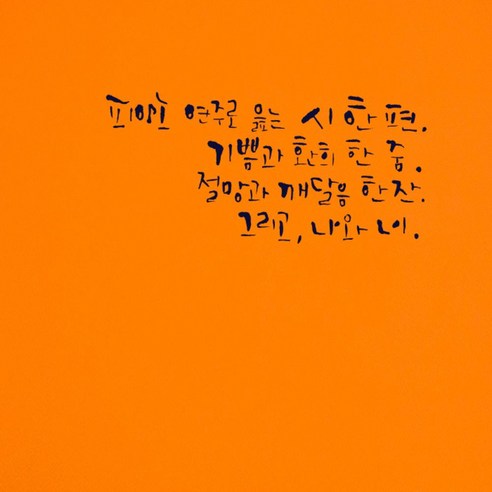 피아노 연주로 읊는 시 한 편.
기쁨과 환희 한 줌.
절망과 깨달음 한 잔.
그리고, 나와 너.